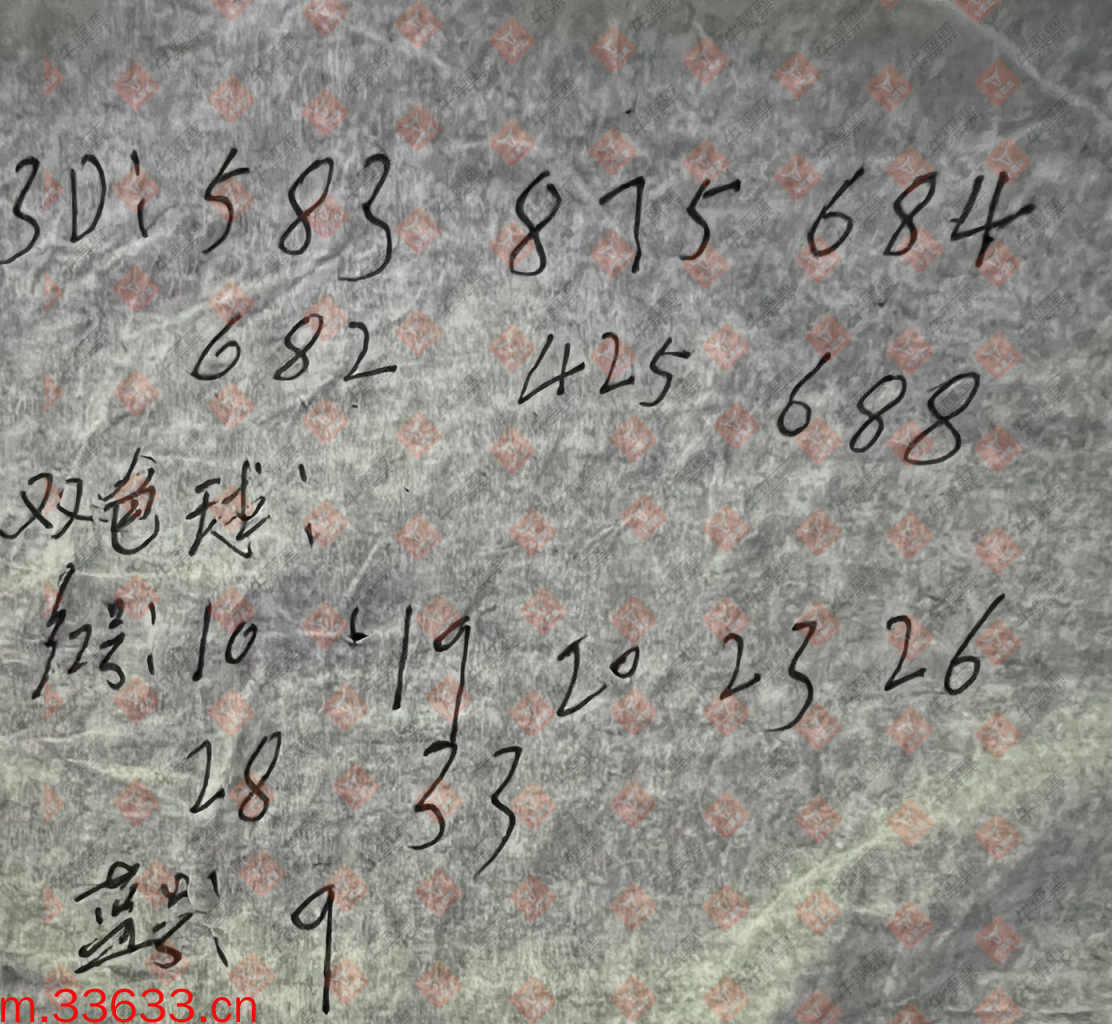 3D: 583 875 684
682 425 688
双色球:
红号: 10 19 20 23 26
28 33
蓝号: 9
m.33633.cn